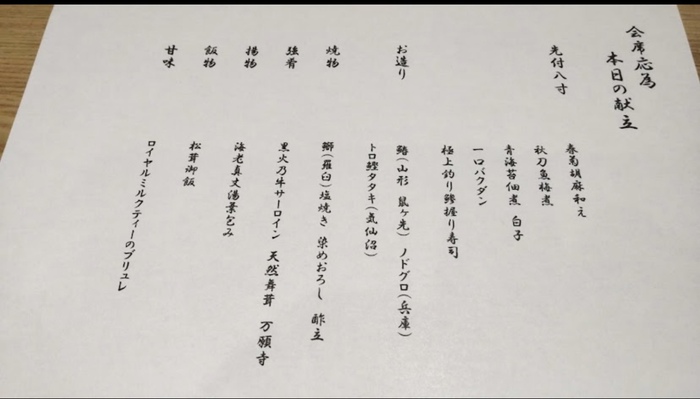 会席応為
本日の献立
先付八寸
春菊胡麻和え
秋刀魚梅煮
青海苔佃煮 白子
一口バクダン
極上釣り鯵握り寿司
お造り
鰆(山形 鼠ヶ光) ノドグロ(兵庫)
トロ鰹タタキ(気仙沼)
焼物
鰤(羅臼)塩焼き 染めおろし 酢立
強肴
黒火乃牛サーロイン 天然舞茸 万願寺
揚物
海老真丈湯葉包み
飯物
松茸御飯
甘味
ロイヤルミルクティーのブリュレ